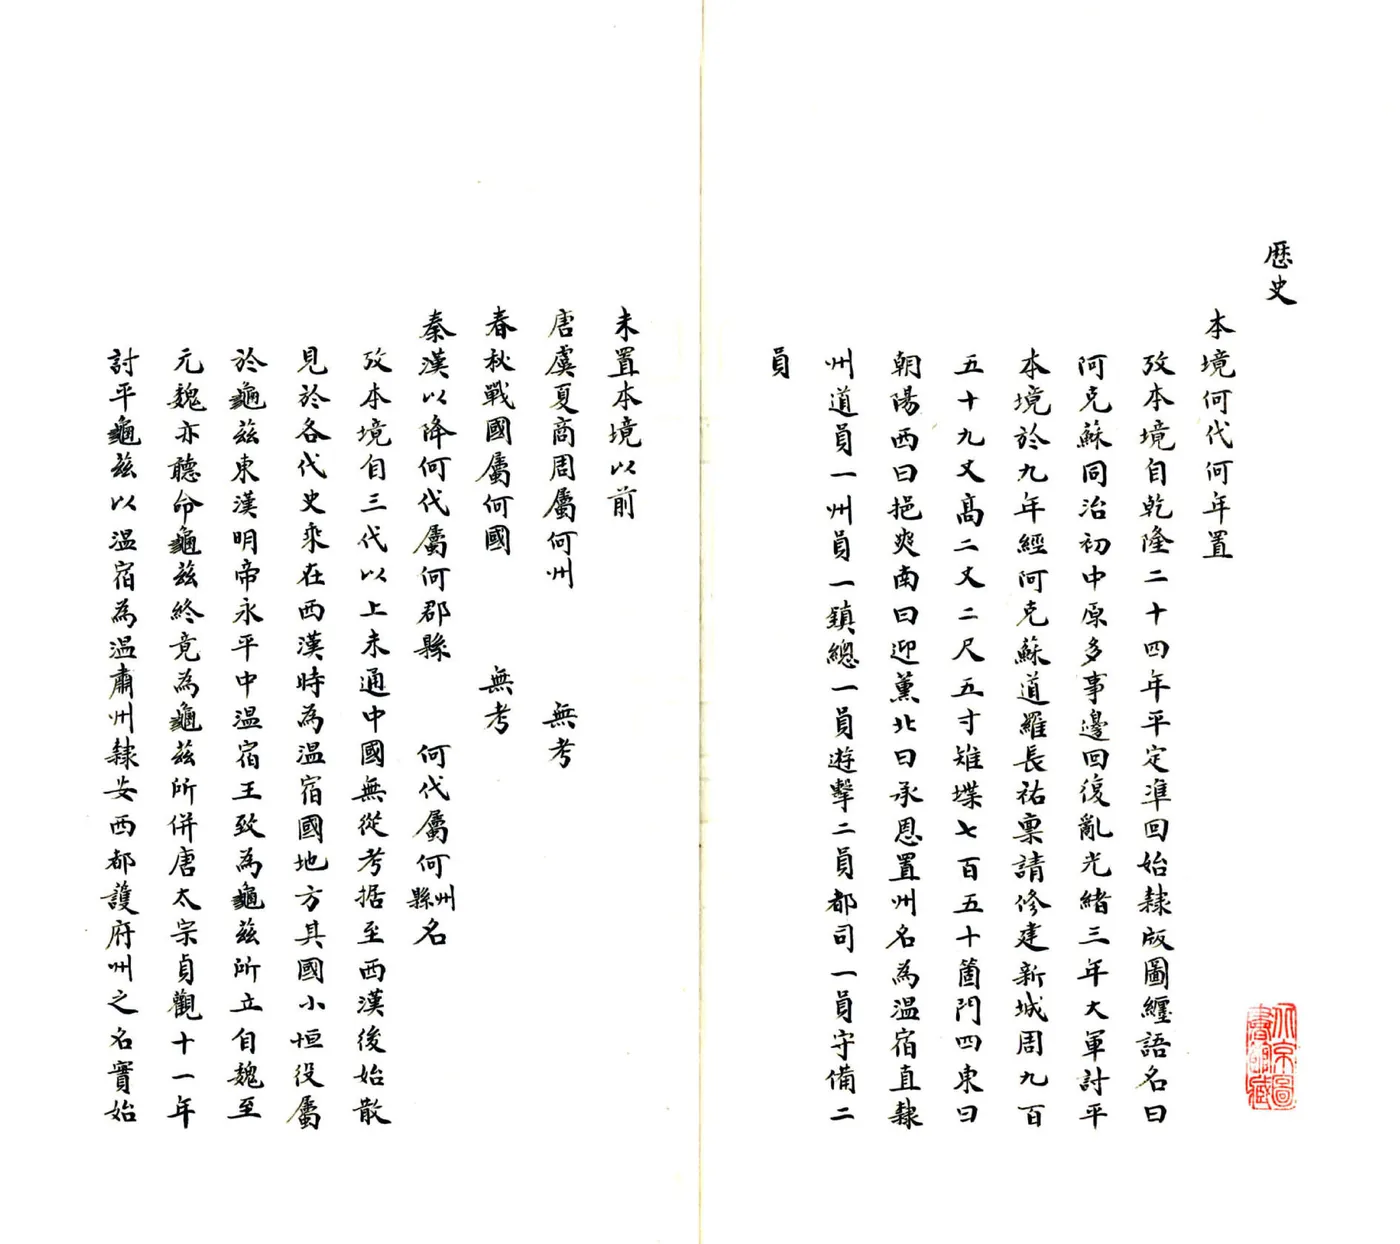 歷史
本境何代何年置
攷本境自乾隆二十四年平定準回始隸版圖纏語名曰
阿克蘇同治初中原多事邊回復亂光緒三年大軍討平
本境於九年經阿克蘇道羅長祐稟請修建新城周九百
五十九丈高二丈二尺五寸雉堞七百五十箇門四東曰
朝陽西曰挹爽南曰迎薰北曰承恩置州名為温宿直隸
州道員一州員一鎮總一員遊擊二員都司一員守備二
員
未置本境以前
唐虞夏商周屬何州 無考
春秋戰國屬何國 無考
秦漢以降何代屬何郡縣 何代屬何州縣名
攷本境自三代以上未通中國無從考据至西漢後始散
見於各代史乘在西漢時為温宿國地方其國小恒役屬
於龜茲東漢明帝永平中温宿王致為龜茲所立自魏至
元魏亦聽命龜茲終竟為龜茲所併唐太宗貞觀十一年
討平龜茲以温宿為温肅州隸安西都護府州之名實始
北京圖書館藏